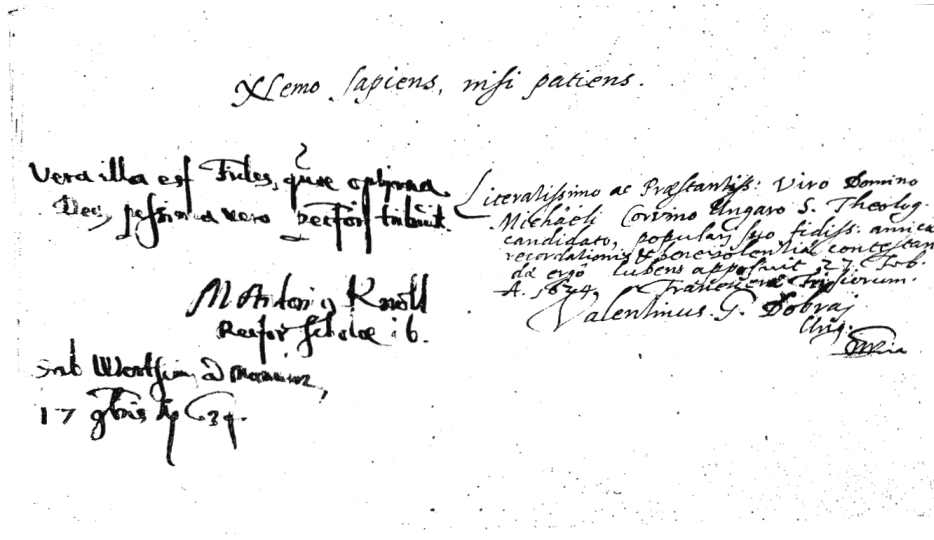 Nemo sapiens, nisi patiens.
Vera illa est Fides, quae optima
Deo, pessima vero tribuit.
M Antoni9 Knoll
Rector Scholae ib.
Literatissimo ac Præstantiss: Viro Domino
Michaëli Corvino Ungaro S. Theolog.
candidato, populari suo fidiss: amicæ
recordationis & benevolentiæ contestan
dæ ergô lubens apposuit 27 Feb.
A. 1624, Franekeræ Frisiorum.
Valentinus. G. Dobraj
Ung.
17 9bris 34.